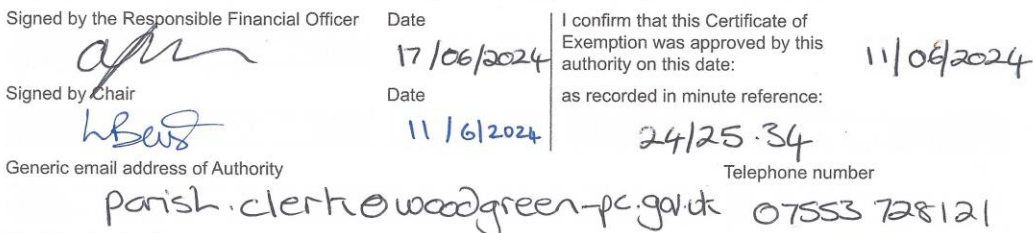 Signed by the Responsible Financial Officer Date
17/06/2024
I confirm that this Certificate of
Exemption was approved by this
authority on this date:
11/06/2024
Signed by Chair Date
11/6/2024
as recorded in minute reference:
24/25.34
Generic email address of Authority Telephone number
parish.clerk@woodgreen-pc.gov.uk 07553 728121